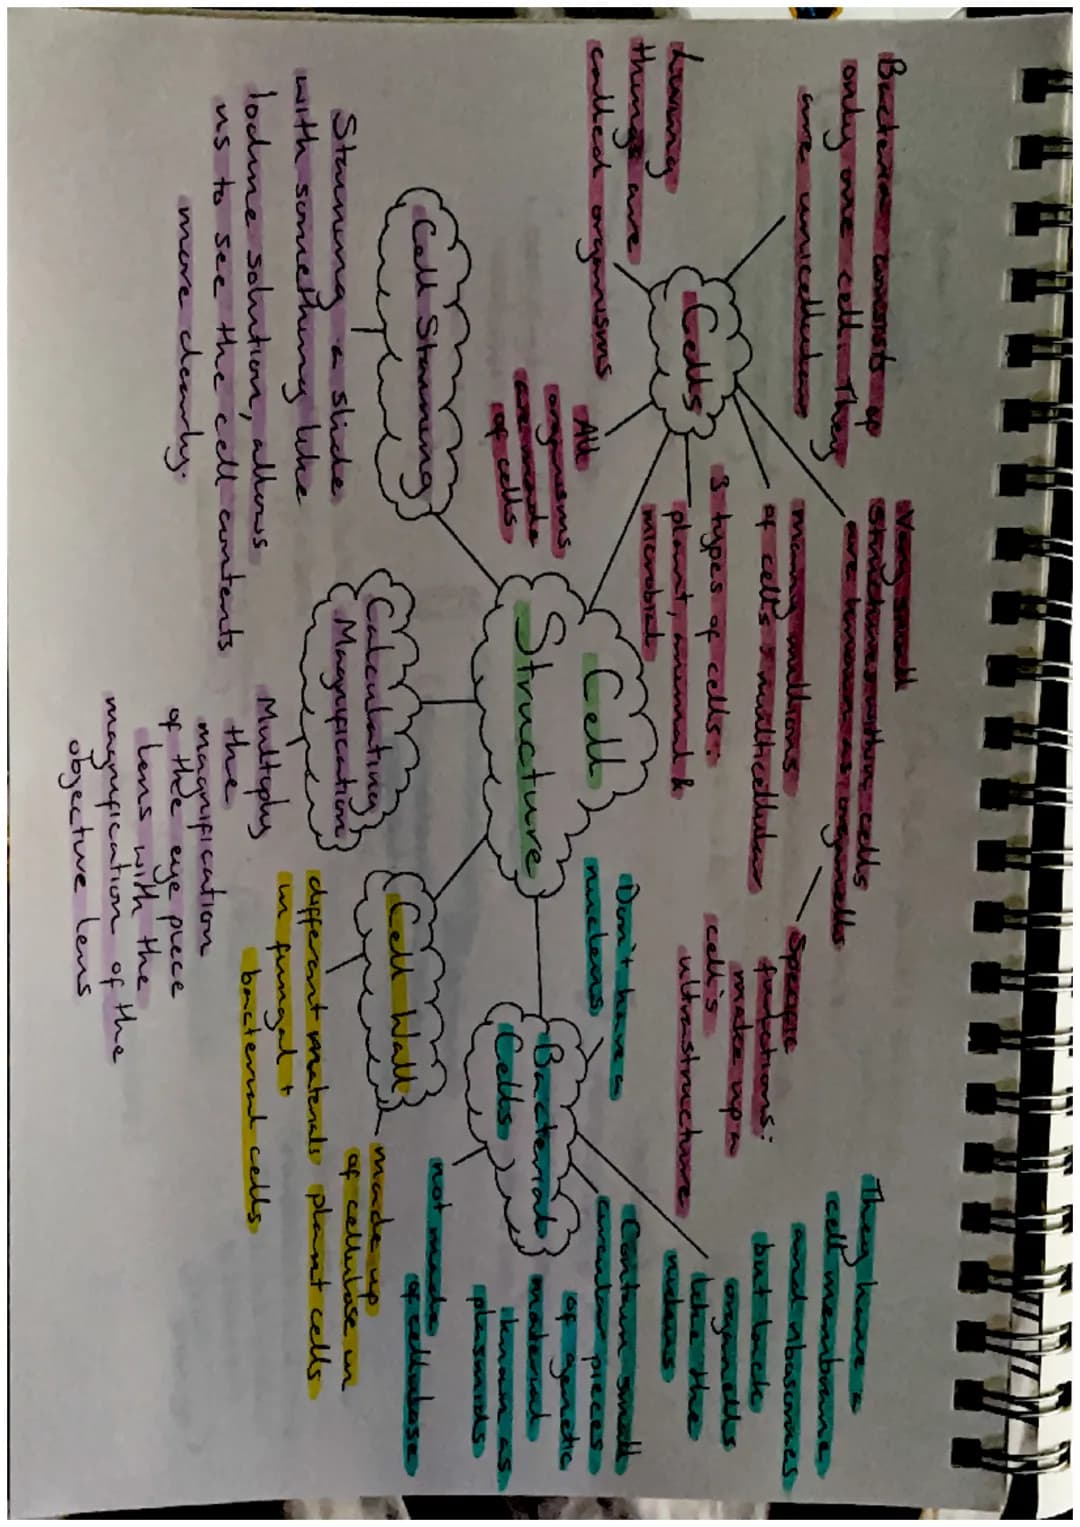 Bacteria consists of
only one cell. They
are unicellular
Living
things are
called organisms
Cells
Very small
structures within cells
are known as organells
Specific
functions:
make up a
cell's
ultrastructure
many millions
of cells = multicellular
3 types of cells:
plant, animal &
microbial
All
organisms
are made
of cells
Cell
Structure
Cell Staining
Staining a slide
with something like
Iodine solution, allows
us to see the cell contents
more clearly.
Calculating
Magnification
Multiply
the
magnification
of the eye piece
lens with the
magnification of the
objective lens
Cell Wall
different materials
in fungal +
bacterial cells
made up
of cellulose in
plant cells
Bacterial
Cells
Don't have a
nucleus
They have a
cell membrane
and ribosomes
but lack
organells
like the
nucleus
Contain small
circular pieces
of genetic
material
known as
plasmids
not made
of cellulose